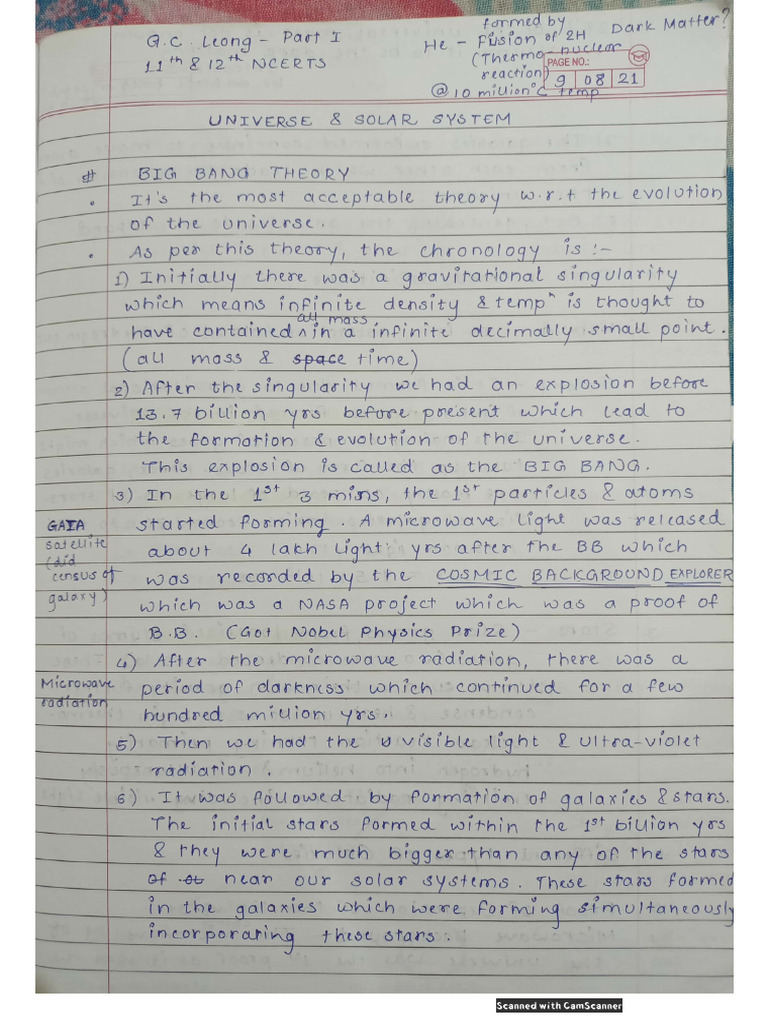 G.C. Leong - Part I
11th & 12th NCERTS
formed by
He - Fusion of 2H
(Thermo-nuclear
reaction)
@ 10 million°C temp
Dark Matter?
PAGE NO.:
9 08 21
UNIVERSE & SOLAR SYSTEM
# BIG BANG THEORY
• It's the most acceptable theory w.r.t the evolution
of the universe.
• As per this theory, the chronology is :-
1) Initially there was a gravitational singularity
which means infinite density & tempⁿ is thought to
have contained ^ all mass in a infinite decimally small point.
(all mass & space time)
2) After the singularity we had an explosion before
13.7 billion yrs before present which lead to
the formation & evolution of the universe.
This explosion is called as the BIG BANG.
3) In the 1st 3 mins, the 1st particles & atoms
started forming. A microwave light was released
about 4 lakh light yrs after the BB which
was recorded by the COSMIC BACKGROUND EXPLORER
which was a NASA project which was a proof of
B.B. (Got Nobel Physics Prize)
GAIA
satellite
(did
census of
galaxy)
4) After the microwave radiation, there was a
period of darkness which continued for a few
hundred million yrs.
Microwave
radiation
5) Then we had the visible light & ultra-violet
radiation.
6) It was followed by formation of galaxies & stars.
The initial stars formed within the 1st billion yrs
& they were much bigger than any of the stars
near our solar systems. These stars formed
in the galaxies which were forming simultaneously
incorporating these stars.
Scanned with CamScanner